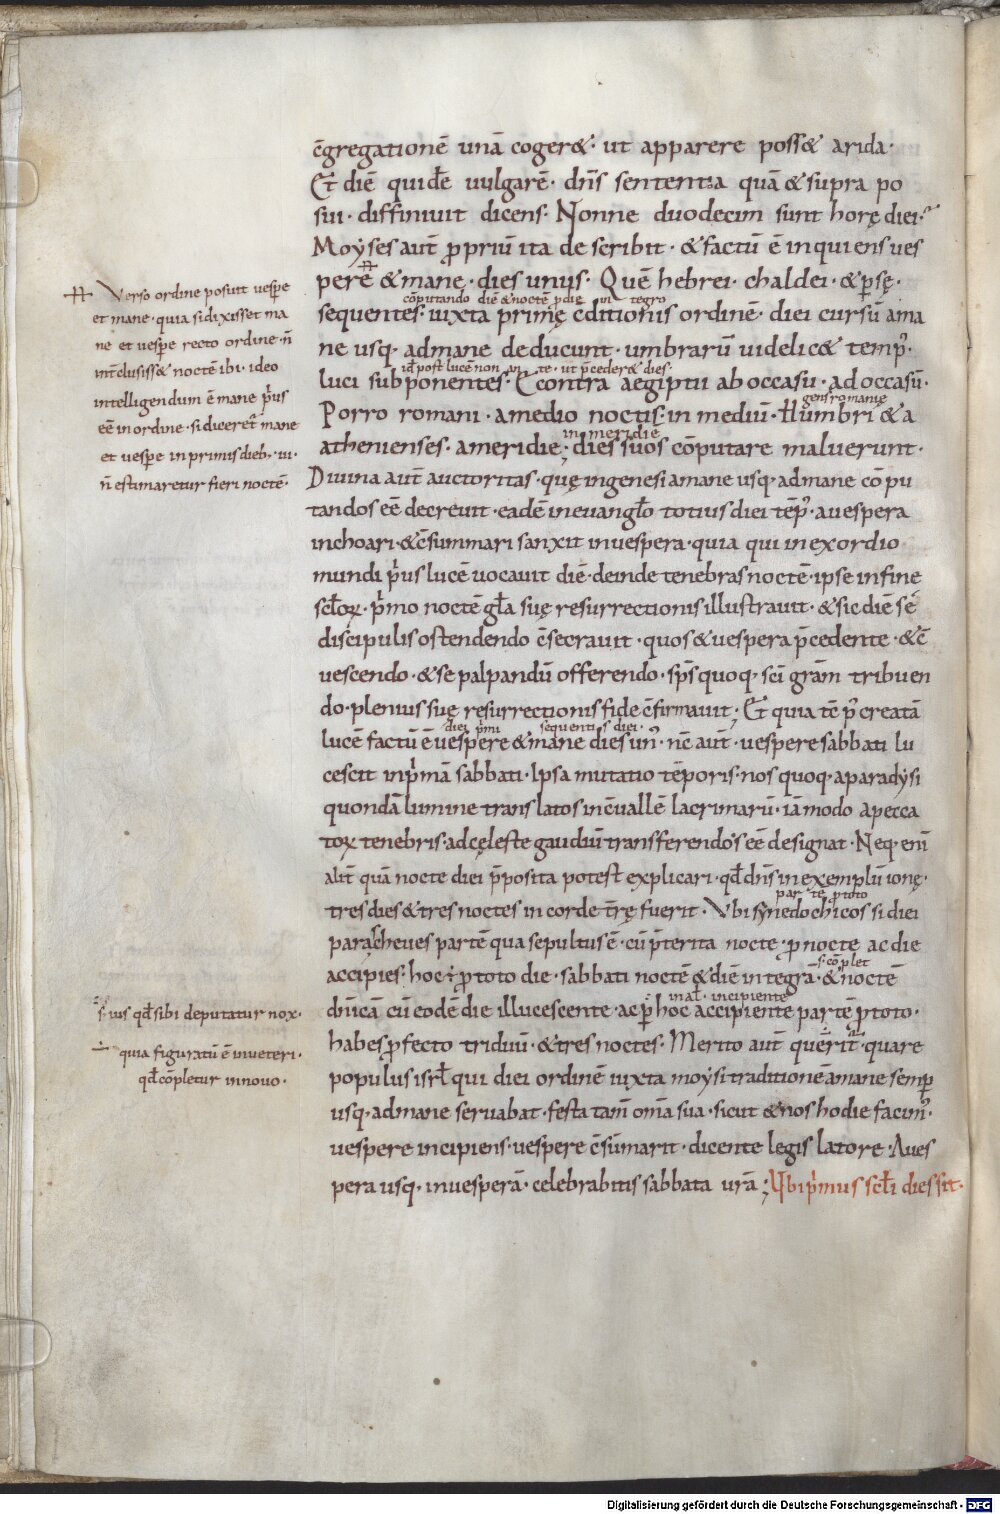 c̄gregationē unā coger&· ut apparere poss& arida·
Et diē quidē uulgarē· dn̄s sententia quā & supra po
sui· diffiniuit dicens· Nonne duodecim sunt horę diei·
Moẏses aut̄ ꝓpriū ita describit· & factū ē inquiens ues
perē & mane· dies unus· Quē hebrei· chaldei· & persę·
cōputando diē & noctē ꝓ die integro
sequentes· iuxta primę c̄ditionis ordinē· diei cursū ama
ne usq· admane deducunt· umbrarū uidelic& temp᾿·
id post lucē non ante· ut p̄ceder& dies·
luci subponentes· E contra aegiptii aboccasu· ad occasū·
gens romanę
Porro romani· amedio noctis· in mediū· Humbri & a
in meridiē
athenienses· ameridie; dies suos cōputare maluerunt·
Diuina aut̄ auctoritas· quę ingenesi amane usq· admane cōpu
tandos eē decreuit· eadē ineuangl̄o totius diei tēp᾿· auespera
inchoari· & c̄summari sanxit inuespera· quia qui inexordio
mundi p'us lucē uocauit diē· deinde tenebras noctē· ipse infine
scl̄oꝝ· p'mo noctē gl̄a suę resurrectionis illustrauit· & sic diē sē
discipulis ostendendo c̄secrauit· quos & uespera p̄cedente· & c̄
uescendo· & se palpandū offerendo· sp̄s quoq· sc̄i gr̄am tribuen
do· plenius suę resurrectionis fidē c̄firmauit; Et quia tē p᾿ creatā
diei p'mi sequentis diei·
lucē factū ē uespere & mane dies un᾿· nc̄ aut̄· uespere sabbati lu
cescit inp'mā sabbati· Ipsa mutatio tēporis· nos quoq· aparadẏsi
quondā lumine translatos inc̄uallē lacrimarū· iā modo apecca
toꝝ tenebris· adcęleste gaudiū transferendos eē designat· Neq· enī
alit̄ quā nocte diei p̄posita potest explicari· qd̄ dn̄s inexemplū ionę·
parte ꝓ toto
tres dies & tres noctes in corde tr̄ę fuerit· Vbi sẏnedochicos si diei
parascheues partē qua sepultus ē· cū p̄terita nocte· ꝓ nocte ac die
·s· cōplet
accipies· hoc ÷ ꝓ toto die· sabbati noctē & diē integra· & noctē
incipiente
dn̄icā cū eodē die illucescente· ac p' hoc accipiente partē ꝓ toto·
habes ꝓfecto triduū· & tres noctes· Merito aut̄ querit̄· quare
populus isrl̄ qui diei ordinē iuxta moẏsi traditionē amane semꝑ
usq· admane seruabat· festa tam̄ om̄a sua· sicut & nos hodie facim᾿·
uespere incipiens· uespere c̄sūmarit· dicente legislatore· Aues
pera usq· inuesperā· celebrabitis sabbata ur̄a; Vbi p'mus scl̄i dies sit·
Verso ordine posuit uesꝑe
et mane· quia si dixisset ma
ne et uesꝑe recto ordine· n̄
int̄clusiss& noctē ibi· ideo
intelligendum ē mane p'us
eē in ordine· si dicer&' mane
et uesꝑe in primis dieb;· ui·
n̄ estimaretur fieri noctē·
ius qd̄ sibi deputatur nox·
quia figuratū ē inueteri·
qd̄ cōpletur innouo·
Digitalisierung gefördert durch die Deutsche Forschungsgemeinschaft - DFG